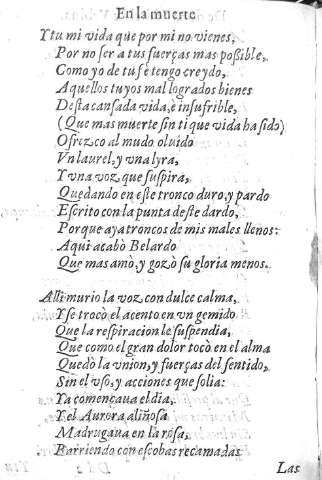 En la muerte
Y tu mi vida que por mi no vienes,
Por no ser a tus fuerças mas poßible,
Como yo de tu fè tengo creydo,
Aquellos tuyos mal logrados bienes
Desta cansada vida, è insufrible,
(Que mas muerte sin ti que vida ha sido)
Ofrezco al mudo olvido
Vn laurel, y vna lyra,
Y vna voz que suspira,
Quedando en este tronco duro, y pardo
Escrito con la punta deste dardo,
Porque aya troncos de mis males llenos:
Aqui acabò Belardo
Que mas amò, y gozò su gloria menos.
Alli murio la voz con dulce calma,
Y se trocò el acento en vn gemido
Que la respiracion le suspendia,
Que como el gran dolor tocò en el alma
Quedò la vnion, y fuerças del sentido,
Sin el vso, y acciones que solia:
Ya començaua el dia,
Y el Aurora aliñosa
Madrugaua en la rosa,
Barriendo con escobas recamadas
Las